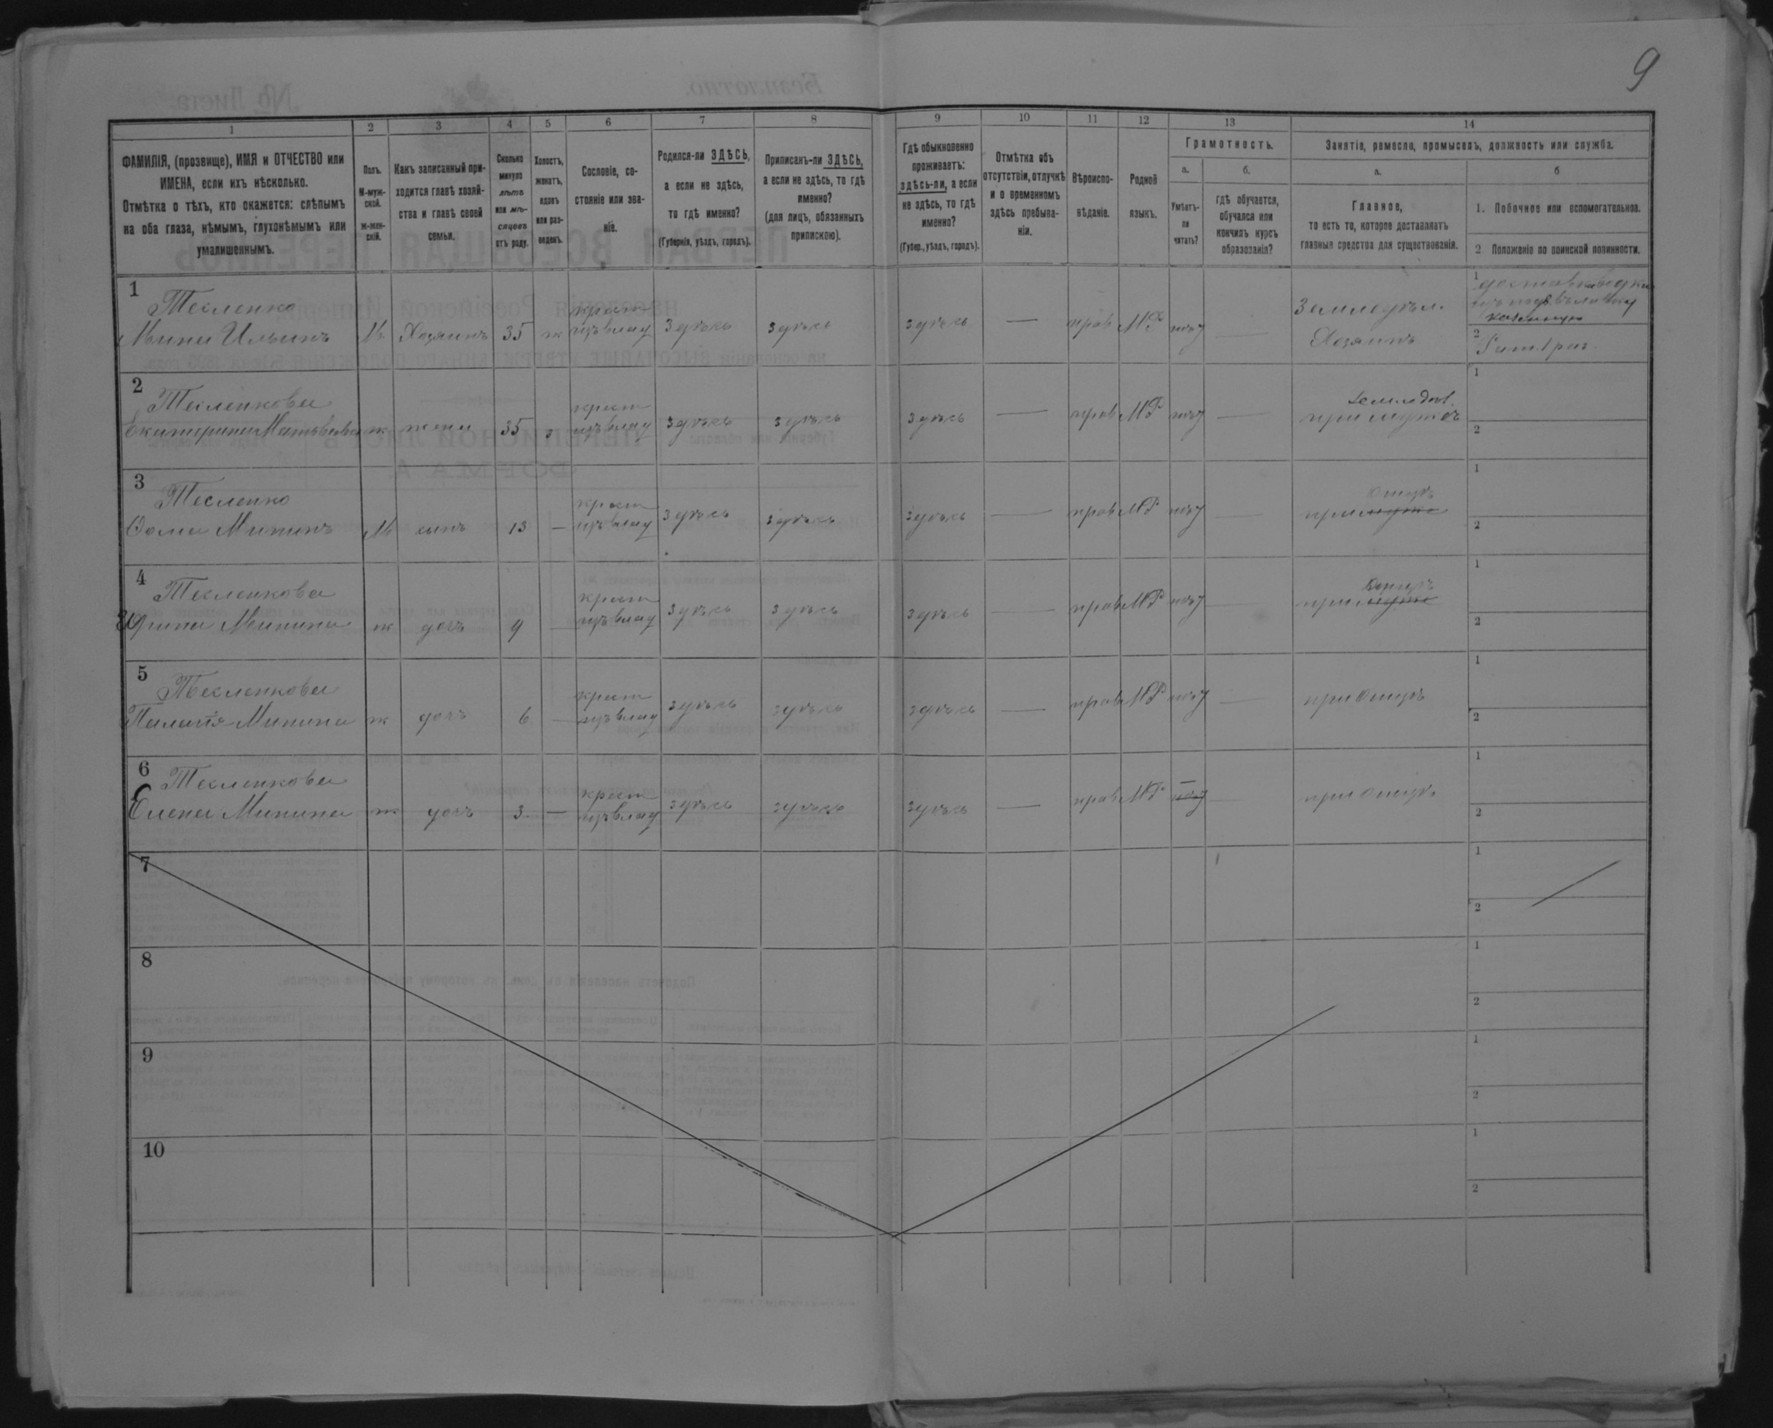 9
1
2
3
4
5
6
7
8
9
10
11
12
13
14
ФАМИЛІЯ, (прозвище), ИМЯ и ОТЧЕСТВО или
ИМЕНА, если ихъ нѣсколько.
Отмѣтка о тѣхъ, кто окажется: слѣпымъ
на оба глаза, нѣмымъ, глухонѣмымъ или
умалишеннымъ.
Полъ.
М-муж-
ской.
Ж-жен-
скій.
Какъ записанный при-
ходится главѣ хозяй-
ства и главѣ своей
семьи.
Сколько
минуло
лѣтъ
или мѣ-
сяцевъ
отъ роду.
Холостъ,
женатъ,
вдовъ
или раз-
веденъ.
Сословіе, со-
стояніе или зва-
ніе.
Родился-ли ЗДѢСЬ,
а если не здѣсь,
то гдѣ именно?
(Губернія, уѣздъ, городъ).
Приписанъ-ли ЗДѢСЬ,
а если не здѣсь, то гдѣ
именно?
(для лицъ, обязанныхъ
припискою).
Гдѣ обыкновенно
проживаетъ:
здѣсь-ли, а если
не здѣсь, то гдѣ
именно?
(Губер., уѣздъ, городъ).
Отмѣтка объ
отсутствіи, отлучкѣ
и о временномъ
здѣсь пребыва-
ніи.
Вѣроиспо-
вѣданіе.
Родной
языкъ.
Грамотность.
а.
Умѣетъ-
ли
читать?
б.
гдѣ обучается,
обучался или
кончилъ курсъ
образованія?
Занятія, ремесло, промыселъ, должность или служба.
а.
Главное,
то есть то, которое доставляетъ
главныя средства для существованія.
б
1. Побочное или вспомогательное.
2. Положеніе по воинской повинности.
1
Тесленко
Мина Ильинъ
М
Хозяинъ
35
ж
крест
изъ влад
здѣсь
здѣсь
здѣсь
—
прав
МР
нѣт
—
Земледѣл.
Хозяинъ
1
2
2
Тесленкова
Екатерина Матвѣева
ж
жена
35
крест
изъ влад
здѣсь
здѣсь
здѣсь
—
прав
МР
нѣт
—
при мужѣ
1
2
3
Тесленко
Фома Мининъ
М
сынъ
13
—
крест
изъ влад
здѣсь
здѣсь
здѣсь
—
прав
МР
нѣт
—
отцѣ
при мужѣ
1
2
4
Тесленкова
Минина
ж
дочь
9
—
крест
изъ влад
здѣсь
здѣсь
здѣсь
—
прав
МР
нѣт
—
отцѣ
при мужѣ
1
2
5
Тесленкова
Минина
ж
дочь
6
—
крест
изъ влад
здѣсь
здѣсь
здѣсь
—
прав
МР
нѣт
—
при отцѣ
1
2
6
Тесленкова
Елена Минина
ж
дочь
3
—
крест
изъ влад
здѣсь
здѣсь
здѣсь
—
прав
МР
нѣт
—
при отцѣ
1
2
7
1
2
8
1
2
9
1
2
10
1
2